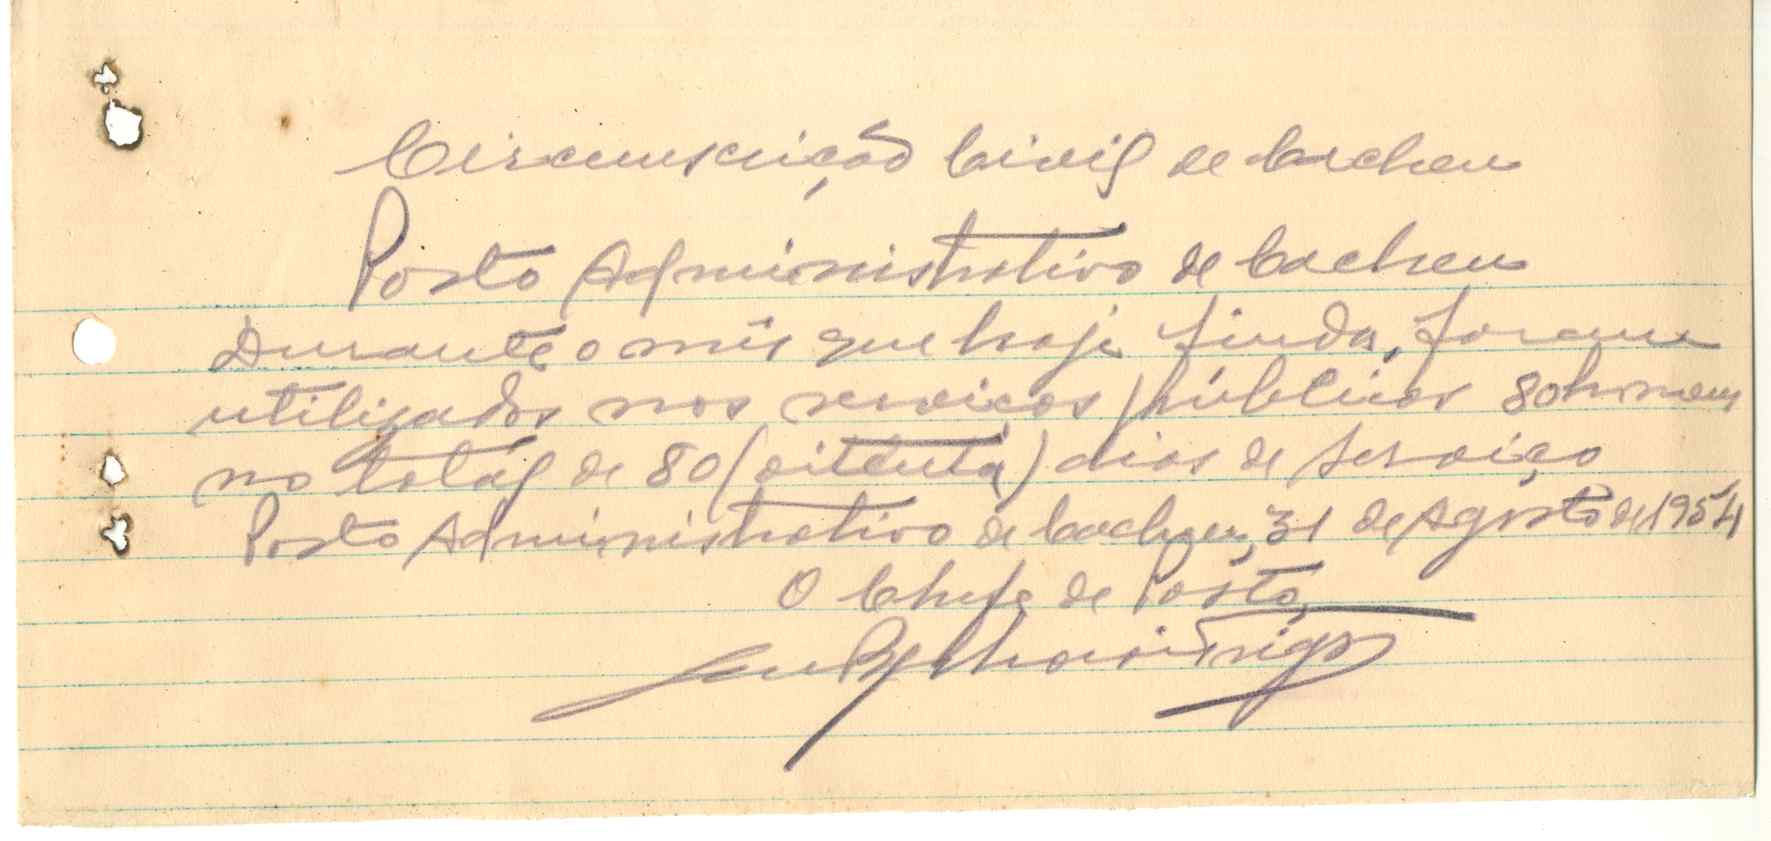 Circunscrição Civil de Cacheu
Posto Administrativo de Cacheu
Durante o mês que hoje finda, foram
utilizados nos serviços públicos 80 homens
no totál de 80 (oitenta) dias de serviço
Posto Administrativo de Cacheu, 31 de Agosto de 1954
O Chefe de Posto,